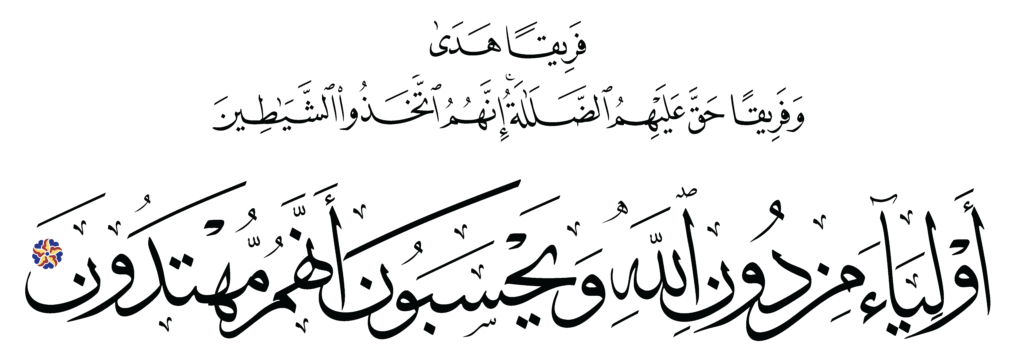 فَرِيقًا هَدَىٰ
وَفَرِيقًا حَقَّ عَلَيْهِمُ ٱلضَّلَٰلَةُ ۚ إِنَّهُمُ ٱتَّخَذُوا۟ ٱلشَّيَٰطِينَ
أَوْلِيَآءَ مِن دُونِ ٱللَّهِ وَيَحْسَبُونَ أَنَّهُم مُّهْتَدُونَ